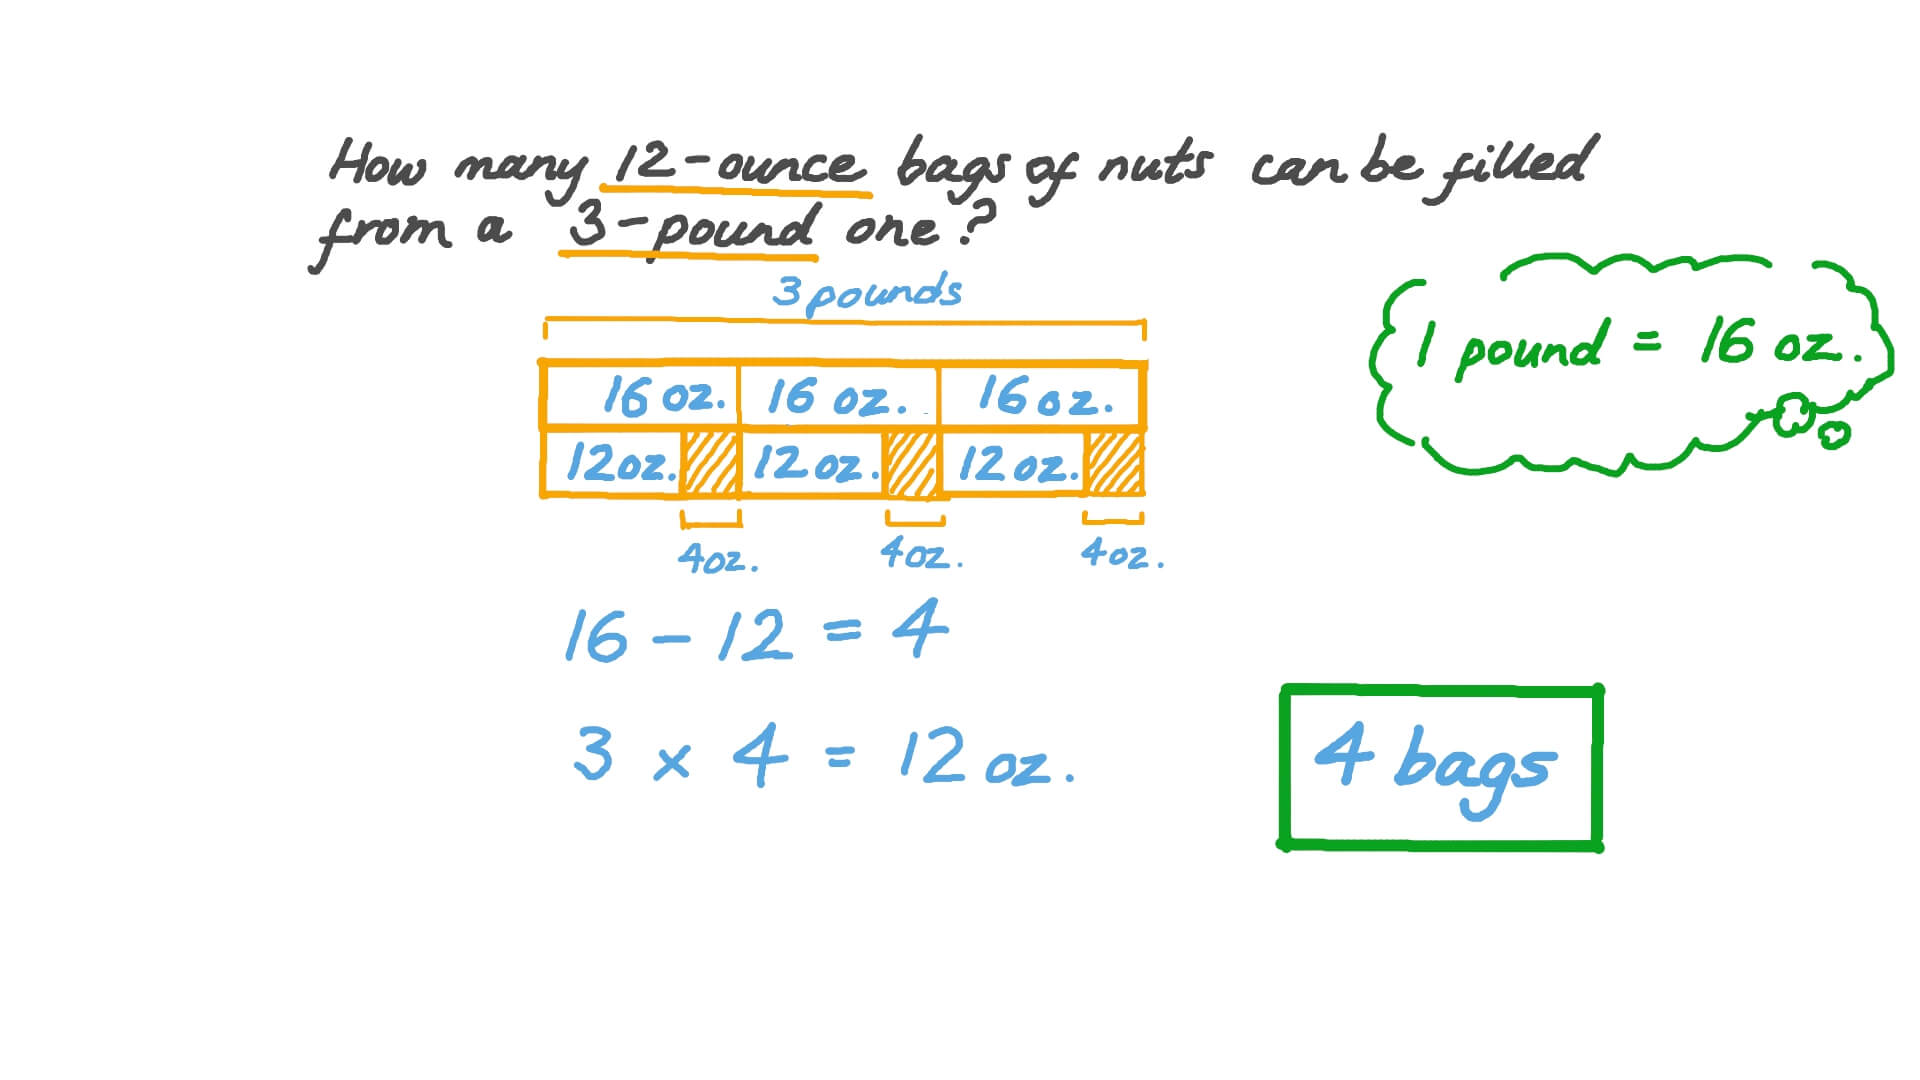 How many 12-ounce bags of nuts can be filled
from a 3-pound one?
3 pounds
1 pound = 16 oz.
16 oz. 16 oz. 16 oz.
12oz. 12 oz. 12 oz.
4oz. 4oz. 4oz.
16 - 12 = 4
3 x 4 = 12 oz.
4 bags